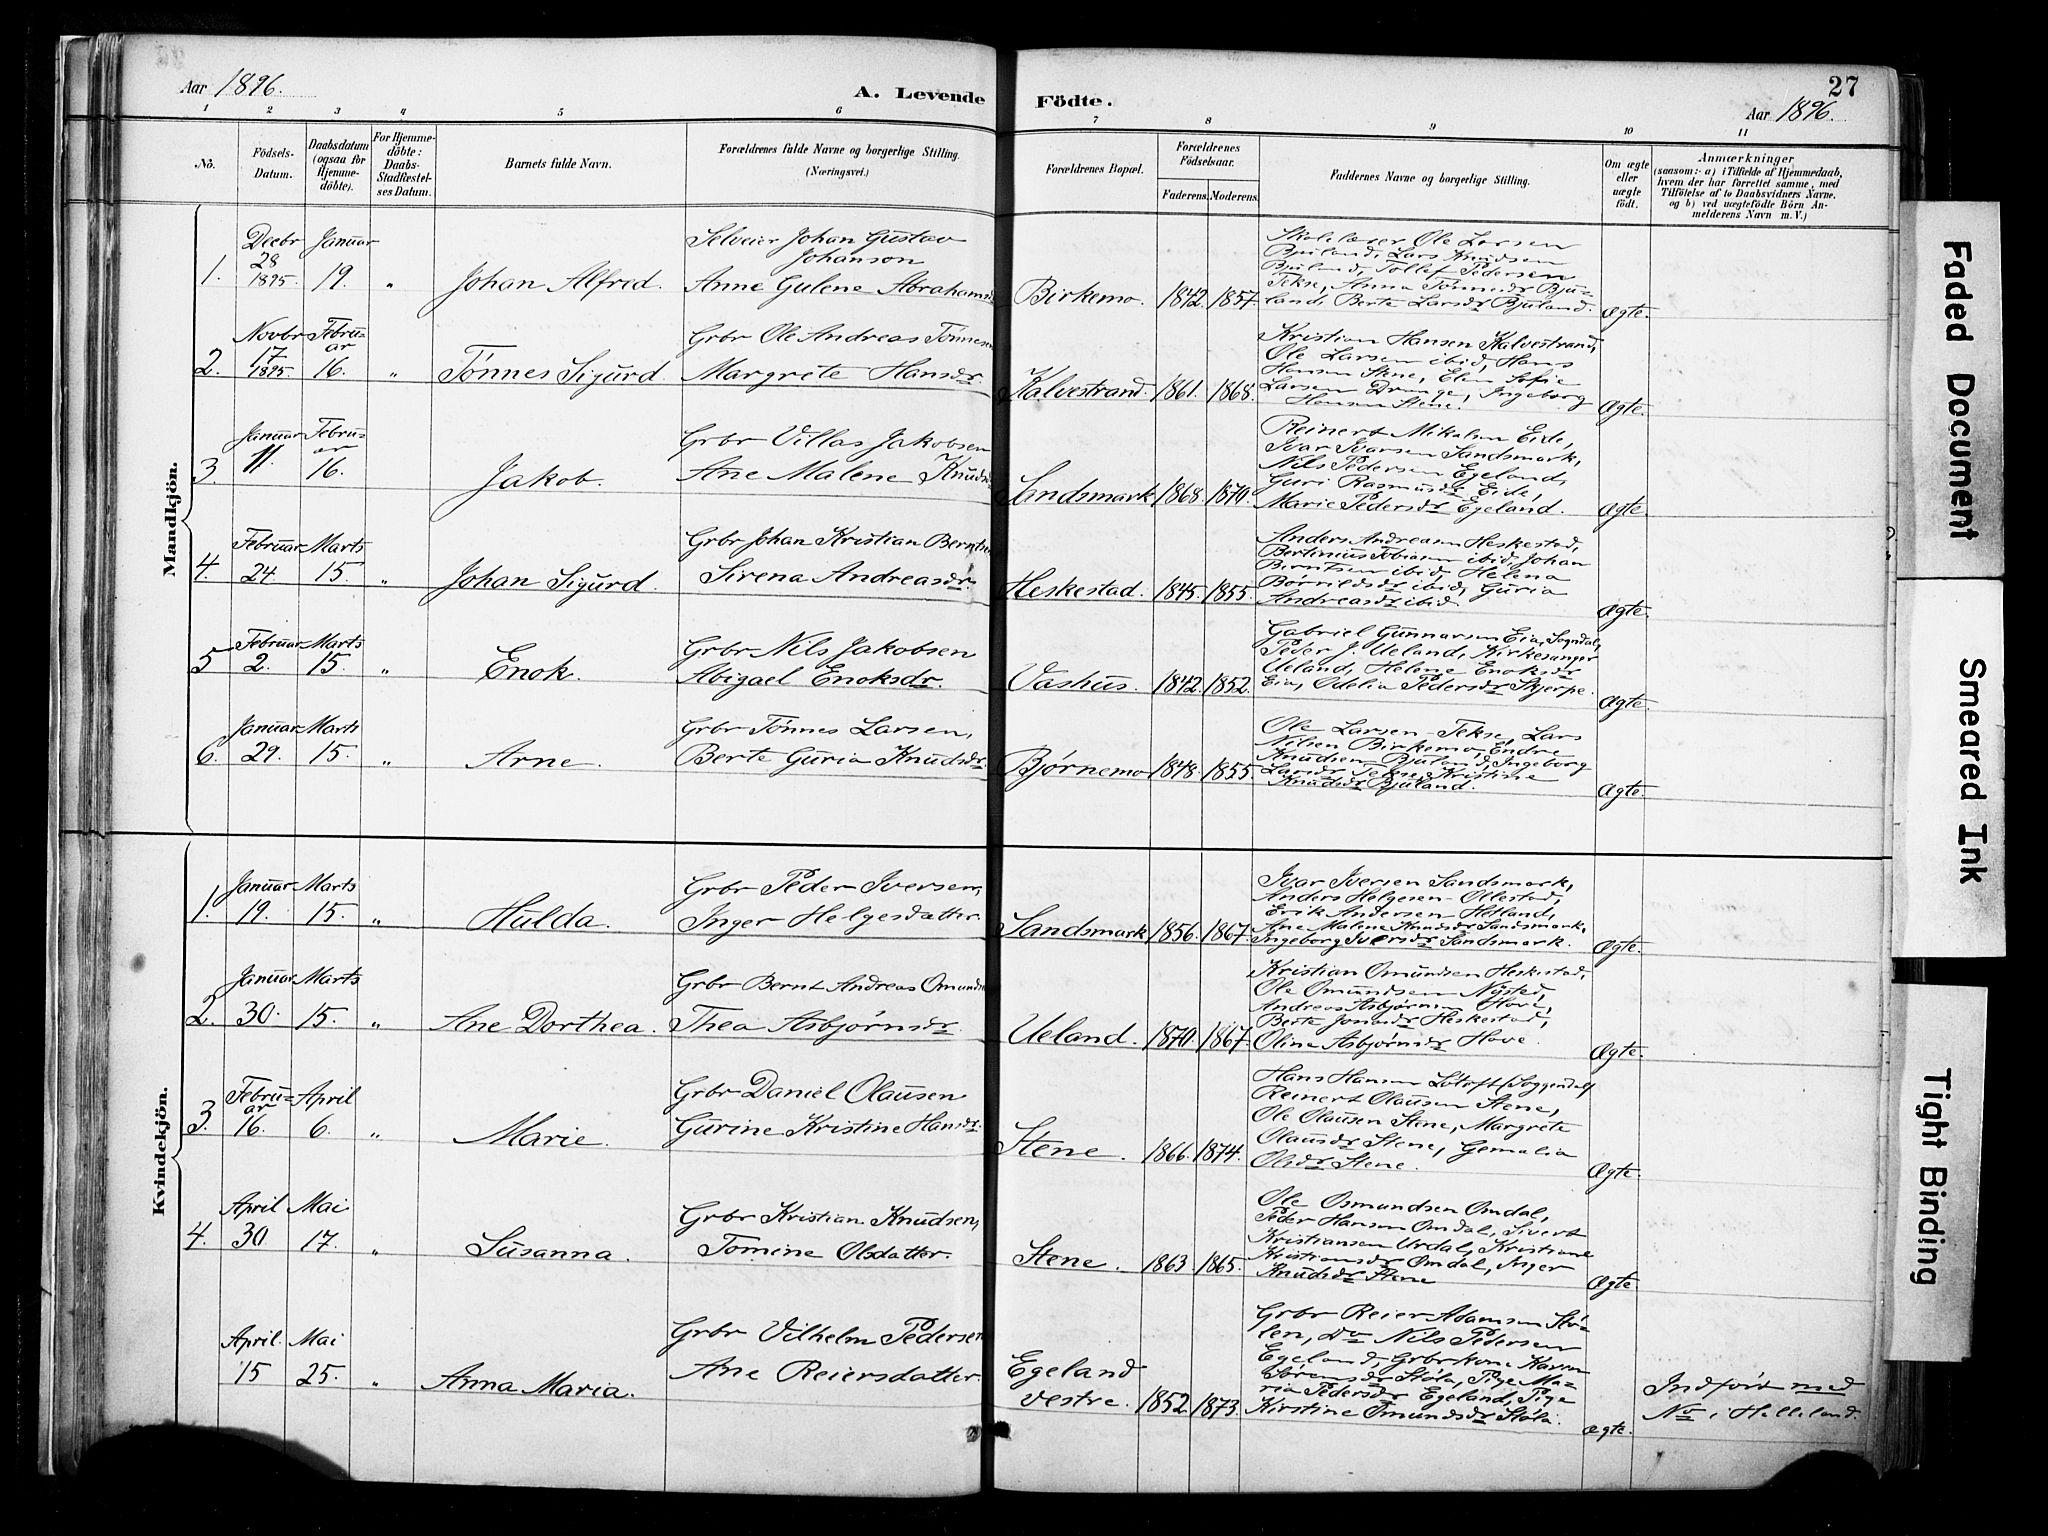 Aar 1896.
A. Levende
Födte.
27
Aar 1896.
1 2 3 4 5 6 7 8 9 10 11
No.
Födsels-
Datum.
Daabsdatum
(ogsaa for
Hjemme-
döbte).
For Hjemme-
döbte:
Daabs-
Stadfæstel-
ses Datum.
Barnets fulde Navn.
Forældrenes fulde Navne og borgerlige Stilling.
(Næringsvei.)
Forældrenes Bopæl.
Forældrenes
Födselsaar.
Faderens. Moderens.
Faddernes Navne og borgerlige Stilling.
Om ægte
eller
uægte
födt.
Anmærkninger
(saasom:- a) i Tilfælde af Hjemmedaab,
hvem der har forrettet samme, med
Tilföielse af to Daabsvidners Navne,
og b) ved uægtefödte Börn An-
melderens Navn m. V.)
Mandkjön.
1.
Decbr
28
1895.
Januar
19.
"
Johan Alfred.
Selveier Johan Gustav
Johanson
Anne Gulene Abrahamsd
Birkemo.
1842.
1857.
Skolelærer Ole Larsen
Bjuland, Lars Knudsen
Bjuland, Tollef Pedersen
Tekse, Anna Tønnesdr Bju-
land, Berte Larsdr Bjuland.
Ægte.
2.
Novbr
17.
1895.
Febru-
ar
16.
"
Tønnes Sigurd.
Grbr Ole Andreas Tønnesen
Margrete Hansdr.
Kalvestrand.
1861.
1868.
Kristian Hansen Kalvestrand,
Ole Larsen ibid, Hans
Hansen Stene, Elen Sofie
Larsen Drange, Ingeborg
Hansen Stene.
Ægte.
3.
Januar
11.
Febru-
ar
16.
Jakob.
Grbr Villas Jakobsen
Ane Malene Knudsd
Sandsmark
1868.
1870.
Reinert Mikalsen Eide,
Ivar Ivarsen Sandsmark,
Nils Pedersen Egeland,
Guri Rasmusdr Eide,
Marie Pedersdr Egeland.
Ægte.
4.
Februar
24
Marts
15.
"
Johan Sigurd.
Grbr Johan Kristian Berntsen
Sirena Andreasdr.
Heskestad.
1845.
1855.
Anders Andreasen Heskestad,
Bertinius Tobiasen ibid, Johan
Berntsen ibid, Helena
Børrildsdr ibid, Guria
Andreasdr ibid
Ægte.
5
Februar
2.
Marts
15.
"
Enok.
Grbr Nils Jakobsen
Abigael Enoksdr.
Vashus.
1842.
1852.
Gabriel Gunnarsen Eia, Sogndal,
Peder J. Ueland, Kirkesanger
Ueland, Helene Enoksdr
Eia, Odelia Pedersdr Skjerpe.
Ægte.
6.
Januar
29.
Marts
15.
"
Arne.
Grbr Tønnes Larsen,
Berte Guria Knudsdr.
Bjørnemo
1848.
1855.
Ole Larsen Tekse, Lars
Nilsen Birkemo, Endre
Knudsen Bjuland, Ingeborg
Larsdr Tekse, Kristine
Knudsdr Bjuland.
Ægte.
Kvindekjön.
1.
Januar
19.
Marts
15.
"
Hulda.
Grbr Peder Iversen,
Inger Helgesdatter.
Sandsmark
1856.
1867.
Ivar Iversen Sandsmark,
Anders Helgesen Ollestad,
Erik Andersen Hetland,
Ane Malene Knudsdr Sandsmark,
Ingeborg Iversdr Sandsmark.
Ægte.
2.
Januar
30.
Marts
15.
"
Ane Dorthea.
Grbr Bernt Andreas Omunds
Thea Asbjørnsdr.
Ueland.
1870.
1867.
Kristian Omundsen Heskestad,
Ole Omundsen Nysted,
Andreas Asbjørnsen Hove,
Berte Jonasdr Heskestad,
Oline Asbjørnsdr Hove.
Ægte.
3.
Febru-
ar
16.
April
6.
"
Marie.
Grbr Daniel Olausen
Gurine Kristine Hansdr.
Stene.
1866.
1874.
Hans Hansen Lötoft (Soggendal)
Reinert Olausen Stene,
Ole Olausen Stene, Margrete
Olausdr Stene, Gemalia
Olsdr Stene.
Ægte.
4.
April
30
Mai
17.
"
Susanna.
Grbr Kristian Knudsen,
Tomine Olsdatter.
Stene.
1863.
1865.
Ole Osmundsen Omdal,
Peder Hansen Omdal, Sivert
Kristiansen Urdal, Kristiane
Kristiansdr Omdal, Inger
Knudsdr Stene
Ægte.
April.
15
Mai
25.
"
Anna Maria.
Grbr Vilhelm Pedersen
Ane Reiersdatter.
Egeland
vestre.
1852.
1873.
Grbr Reier Adamsen Stö-
len, Do Nils Pedersen
Egeland, Grbrkone Karen
Sörensdr Støla, Pige Ma-
ria Pedersdr Egeland, Pige
Kirstine Omundsdr Støla.
ægte.
Indført med
No i Helleland.
Faded Document
Smeared Ink
Tight Binding